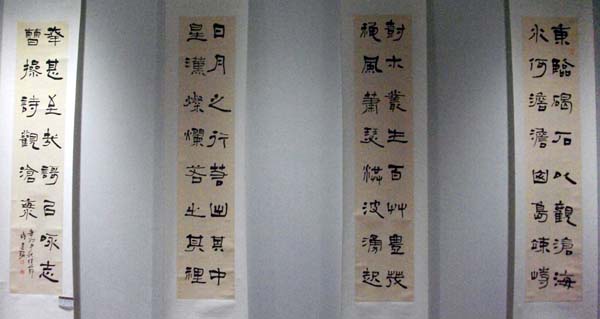 東臨碣石以觀滄海
水何澹澹山島竦峙
樹木叢生百艸豐茂
秋風蕭瑟洪波湧起
日月之行若出其中
星漢燦爛若出其裡
幸甚至哉謌以咏志
曹操詩觀滄海